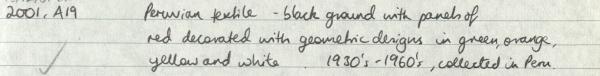 2001.A19 Peruvian textile - black ground with panels of
red decorated with geometric designs in green, orange,
yellow and white 1930's - 1960's, collected in Peru.